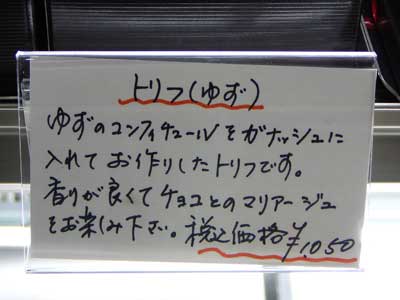 トリフ(ゆず)
ゆずのコンフィチュールをガナッシュに
入れてお作りしたトリフです。
香りが良くてチョコとのマリアージュ
をお楽しみ下さい。税込価格¥1,050